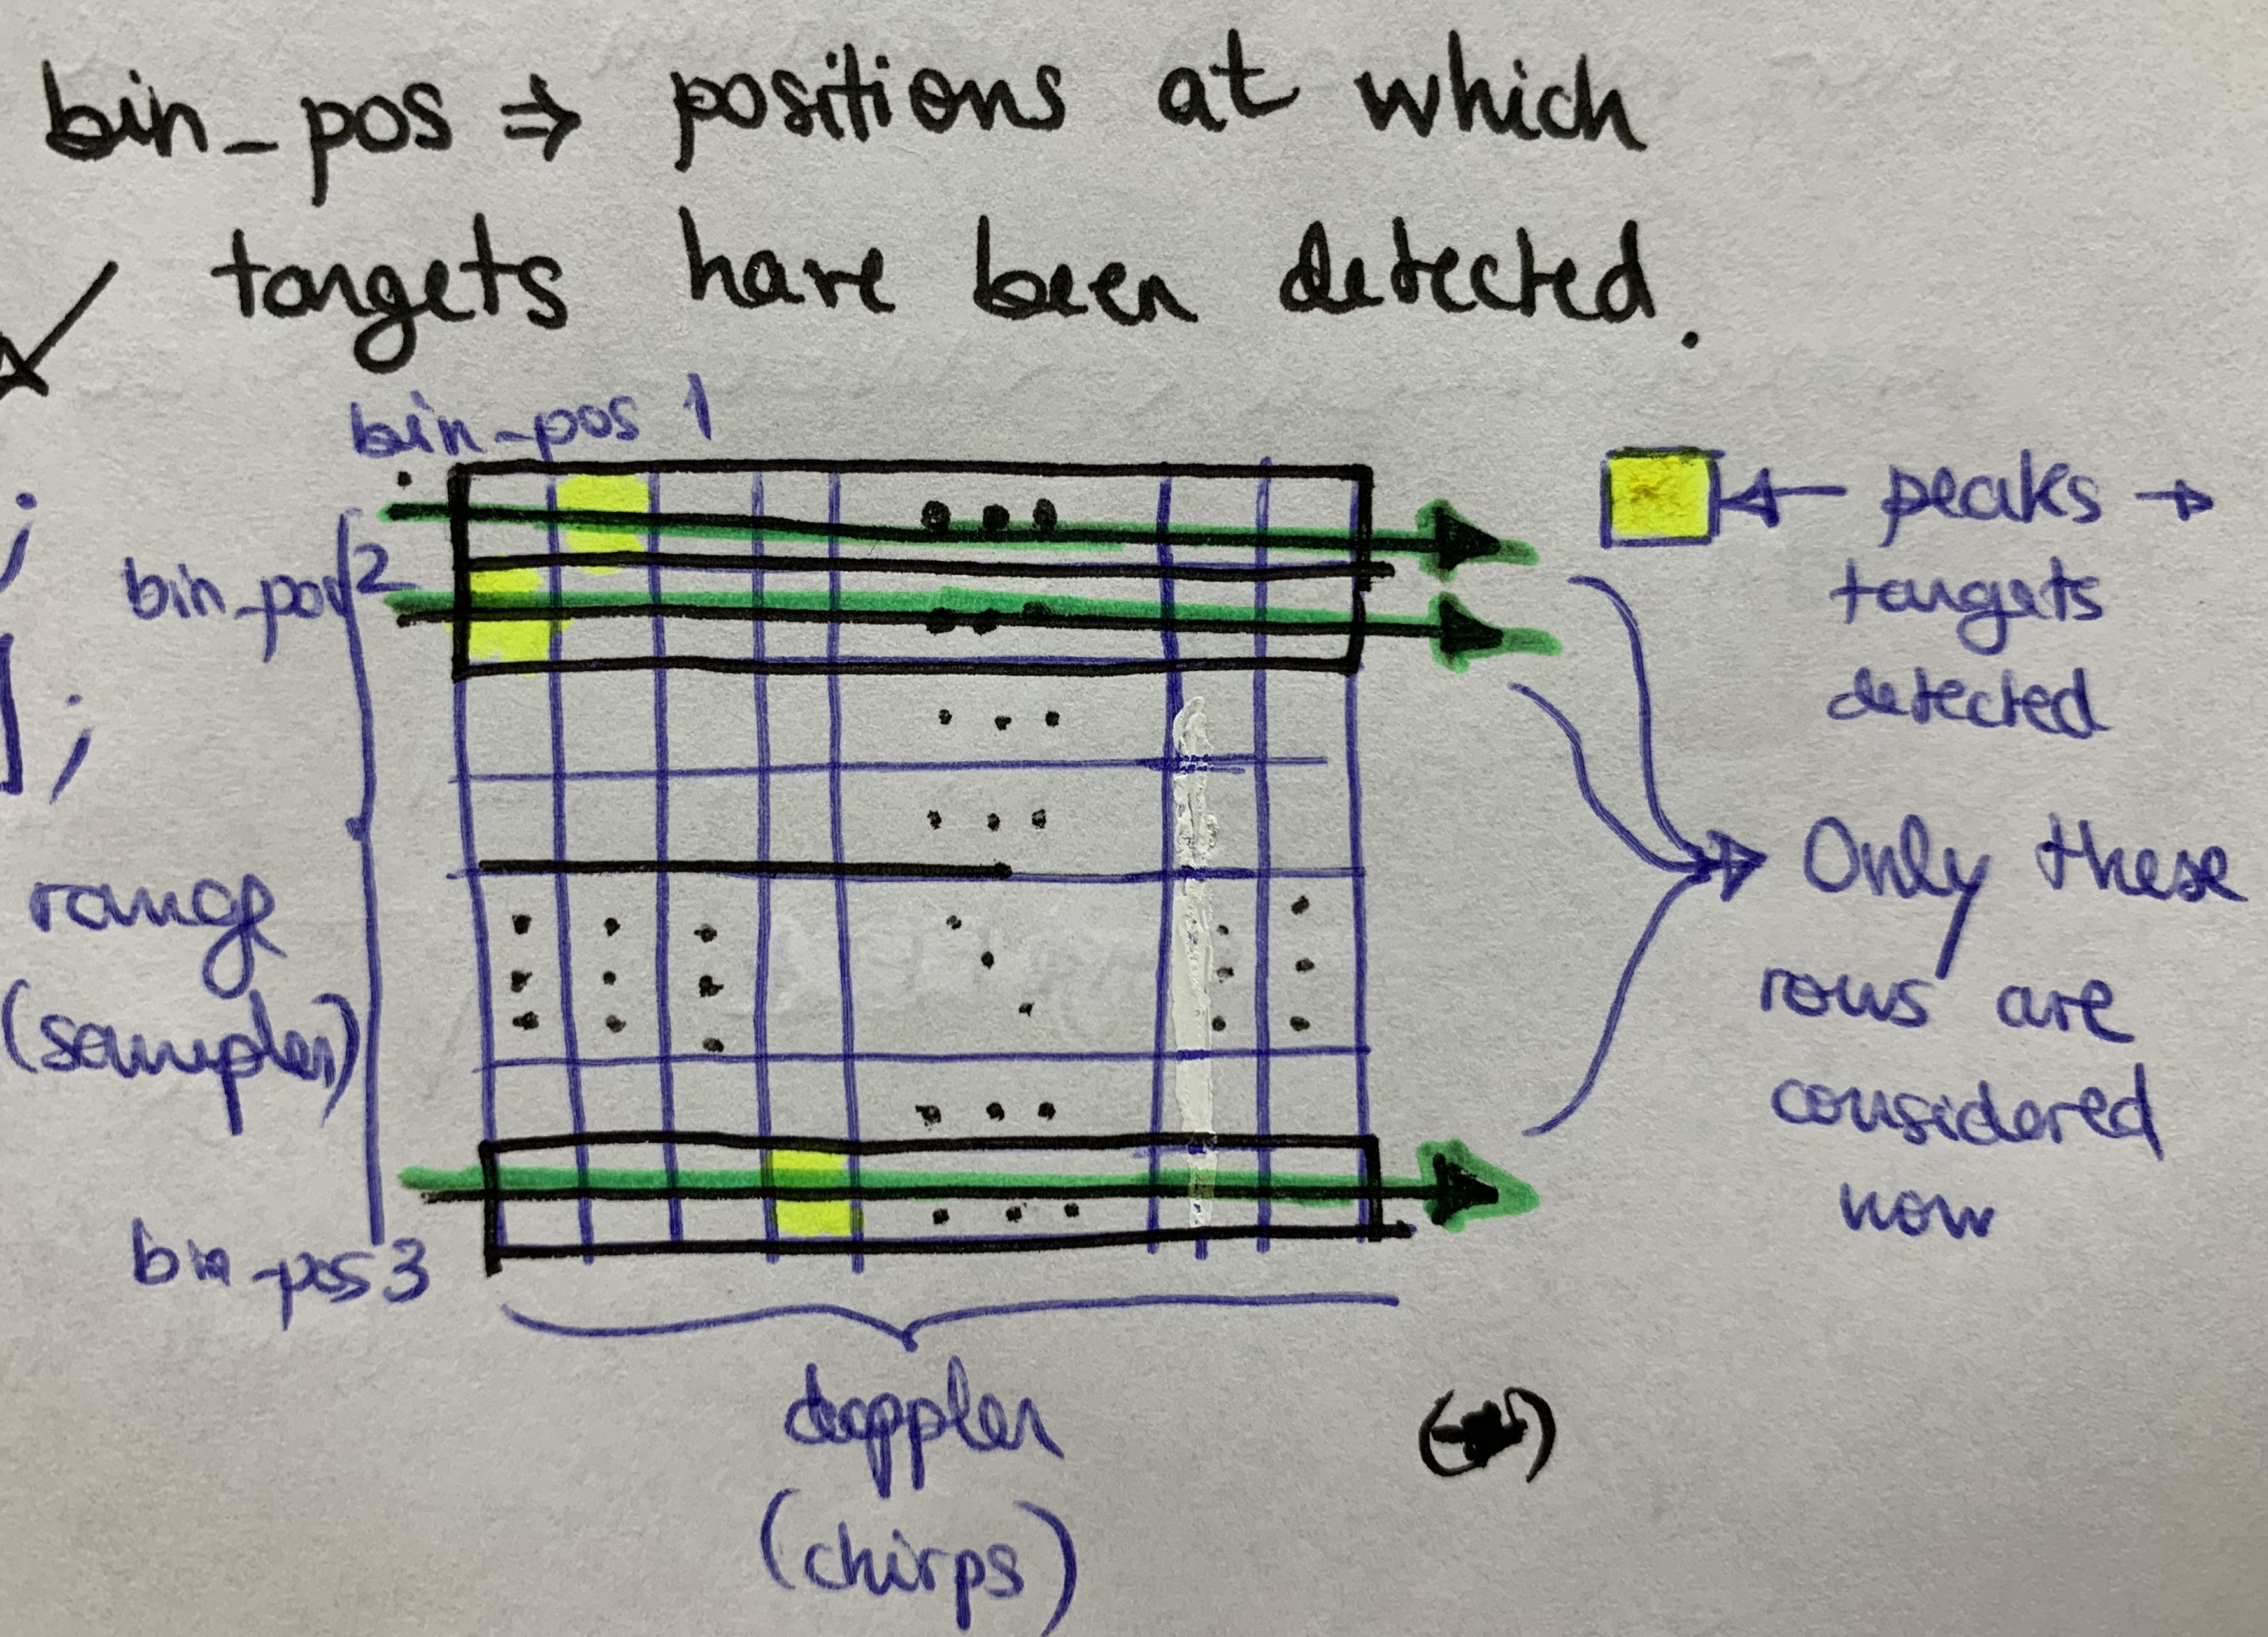 bin_pos ⇒ positions at which
targets have been detected.
bin_pos 1
bin_pos 2
bin_pos 3
;
] ;
range
(samples)
doppler
(chirps)
← peaks →
targets
detected
Only these
rows are
considered
now